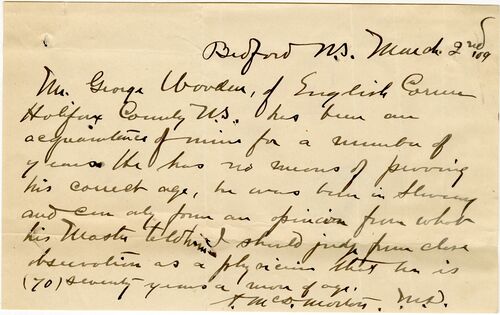 Bedford N.S. March 2nd /09
Mr. George Wooden, of English Corner
Halifax County N.S. has been an
acquaintance of mine for a number of
years He has no means of proving
his correct age, he was born in Slavery
and can only form an opinion from what
his Master told him I should judge from close
observation as a physician that he is
(70) seventy years a man of age.
McD. Morton. M.D.